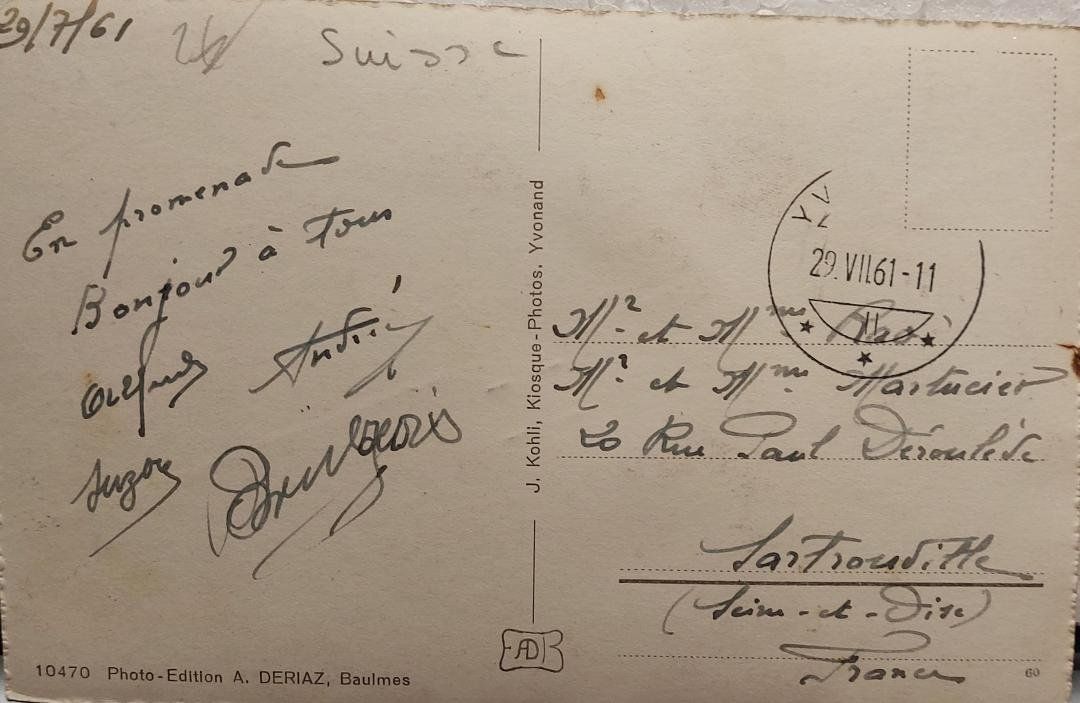 29/7/61
Suisse
En promenade
Bonjour à tous
André
Suzon
J. Kohli, Kiosque-Photos, Yvonand
10470 Photo-Edition A. DERIAZ, Baulmes
YV
29.VII.61-11
Mr et Mme
Mr et Mme Martucier
20 Rue Paul Déroulède
Sartrouville
(Seine-et-Oise)
France
60